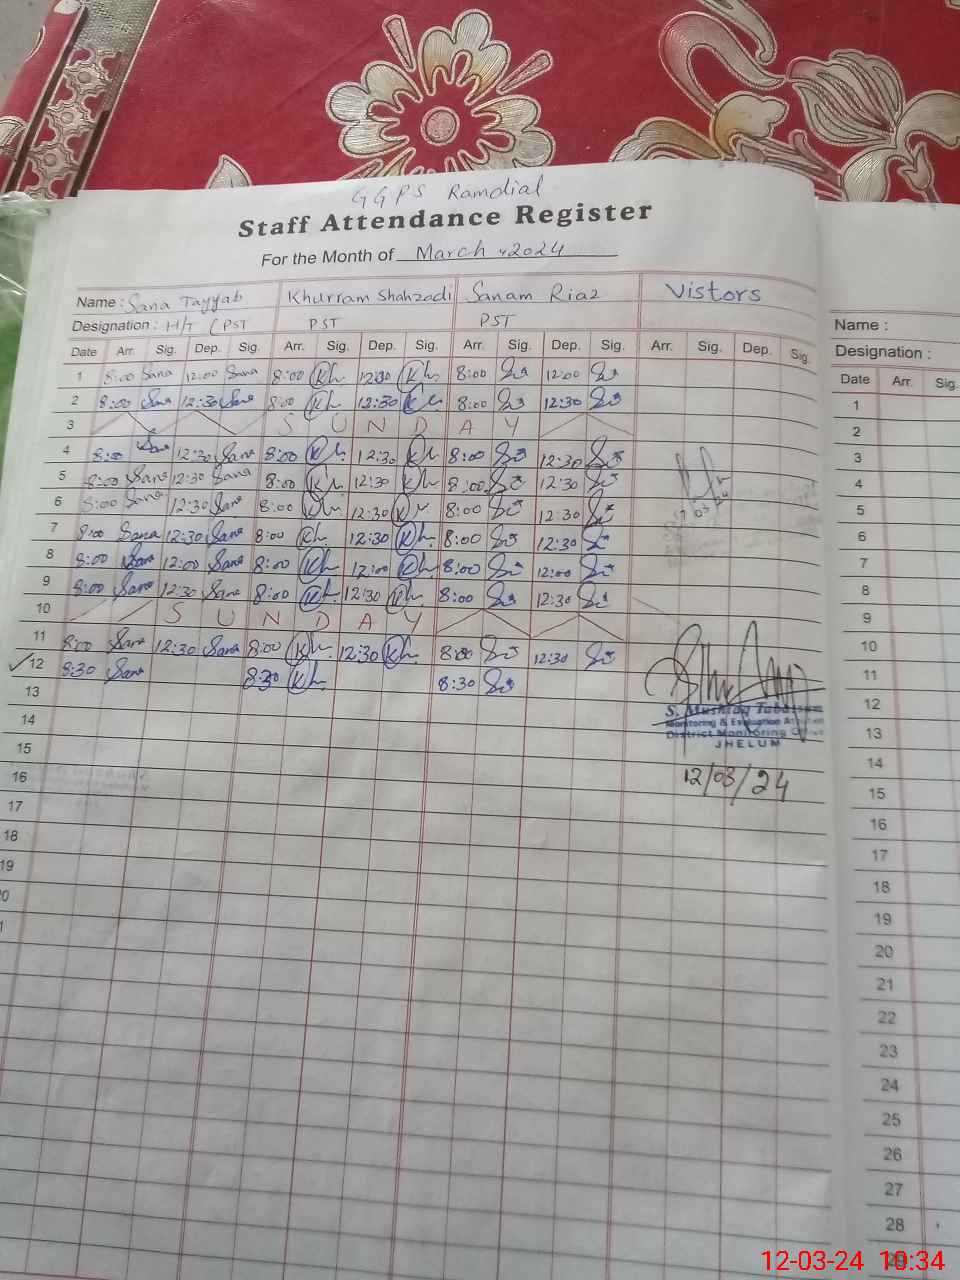 GGPS Ramdial
Staff Attendance Register
For the Month of March - 2024
Name : Sana Tayyab Khurram Shahzadi Sanam Riaz Vistors
Designation : H/T (PST PST PST
Date Arr. Sig. Dep. Sig. Arr. Sig. Dep. Sig. Arr. Sig. Dep. Sig. Arr. Sig. Dep. Sig.
1 8:00 Sana 12:00 Sana 8:00 Kh. 12:00 Kh. 8:00 12:00
2 8:00 Sana 12:30 Sana 8:00 Kh. 12:30 Kh. 8:00 12:30
3 S U N D A Y
4 8:00 Sana 12:30 Sana 8:00 Kh. 12:30 Kh. 8:00 12:30
5 8:00 Sana 12:30 Sana 8:00 Kh. 12:30 Kh. 8:00 12:30
6 8:00 Sana 12:30 Sana 8:00 Kh. 12:30 Kh. 8:00 12:30
7 8:00 Sana 12:30 Sana 8:00 Kh. 12:30 Kh. 8:00 12:30
8 8:00 Sana 12:00 Sana 8:00 Kh. 12:00 Kh. 8:00 12:00
9 8:00 Sana 12:30 Sana 8:00 Kh. 12:30 Kh. 8:00 12:30
10 S U N D A Y
11 8:00 Sana 12:30 Sana 8:00 Kh. 12:30 Kh. 8:00 12:30
12 8:30 Sana 8:30 Kh. 8:30
13
14
15
16
17
18
19
S. Mushtaq Tabassum
Monitoring & Evaluation
District Monitoring
JHELUM
12/03/24
Name :
Designation :
Date Arr. Sig.
1
2
3
4
5
6
7
8
9
10
11
12
13
14
15
16
17
18
19
20
21
22
23
24
25
26
27
28
12-03-24 10:34